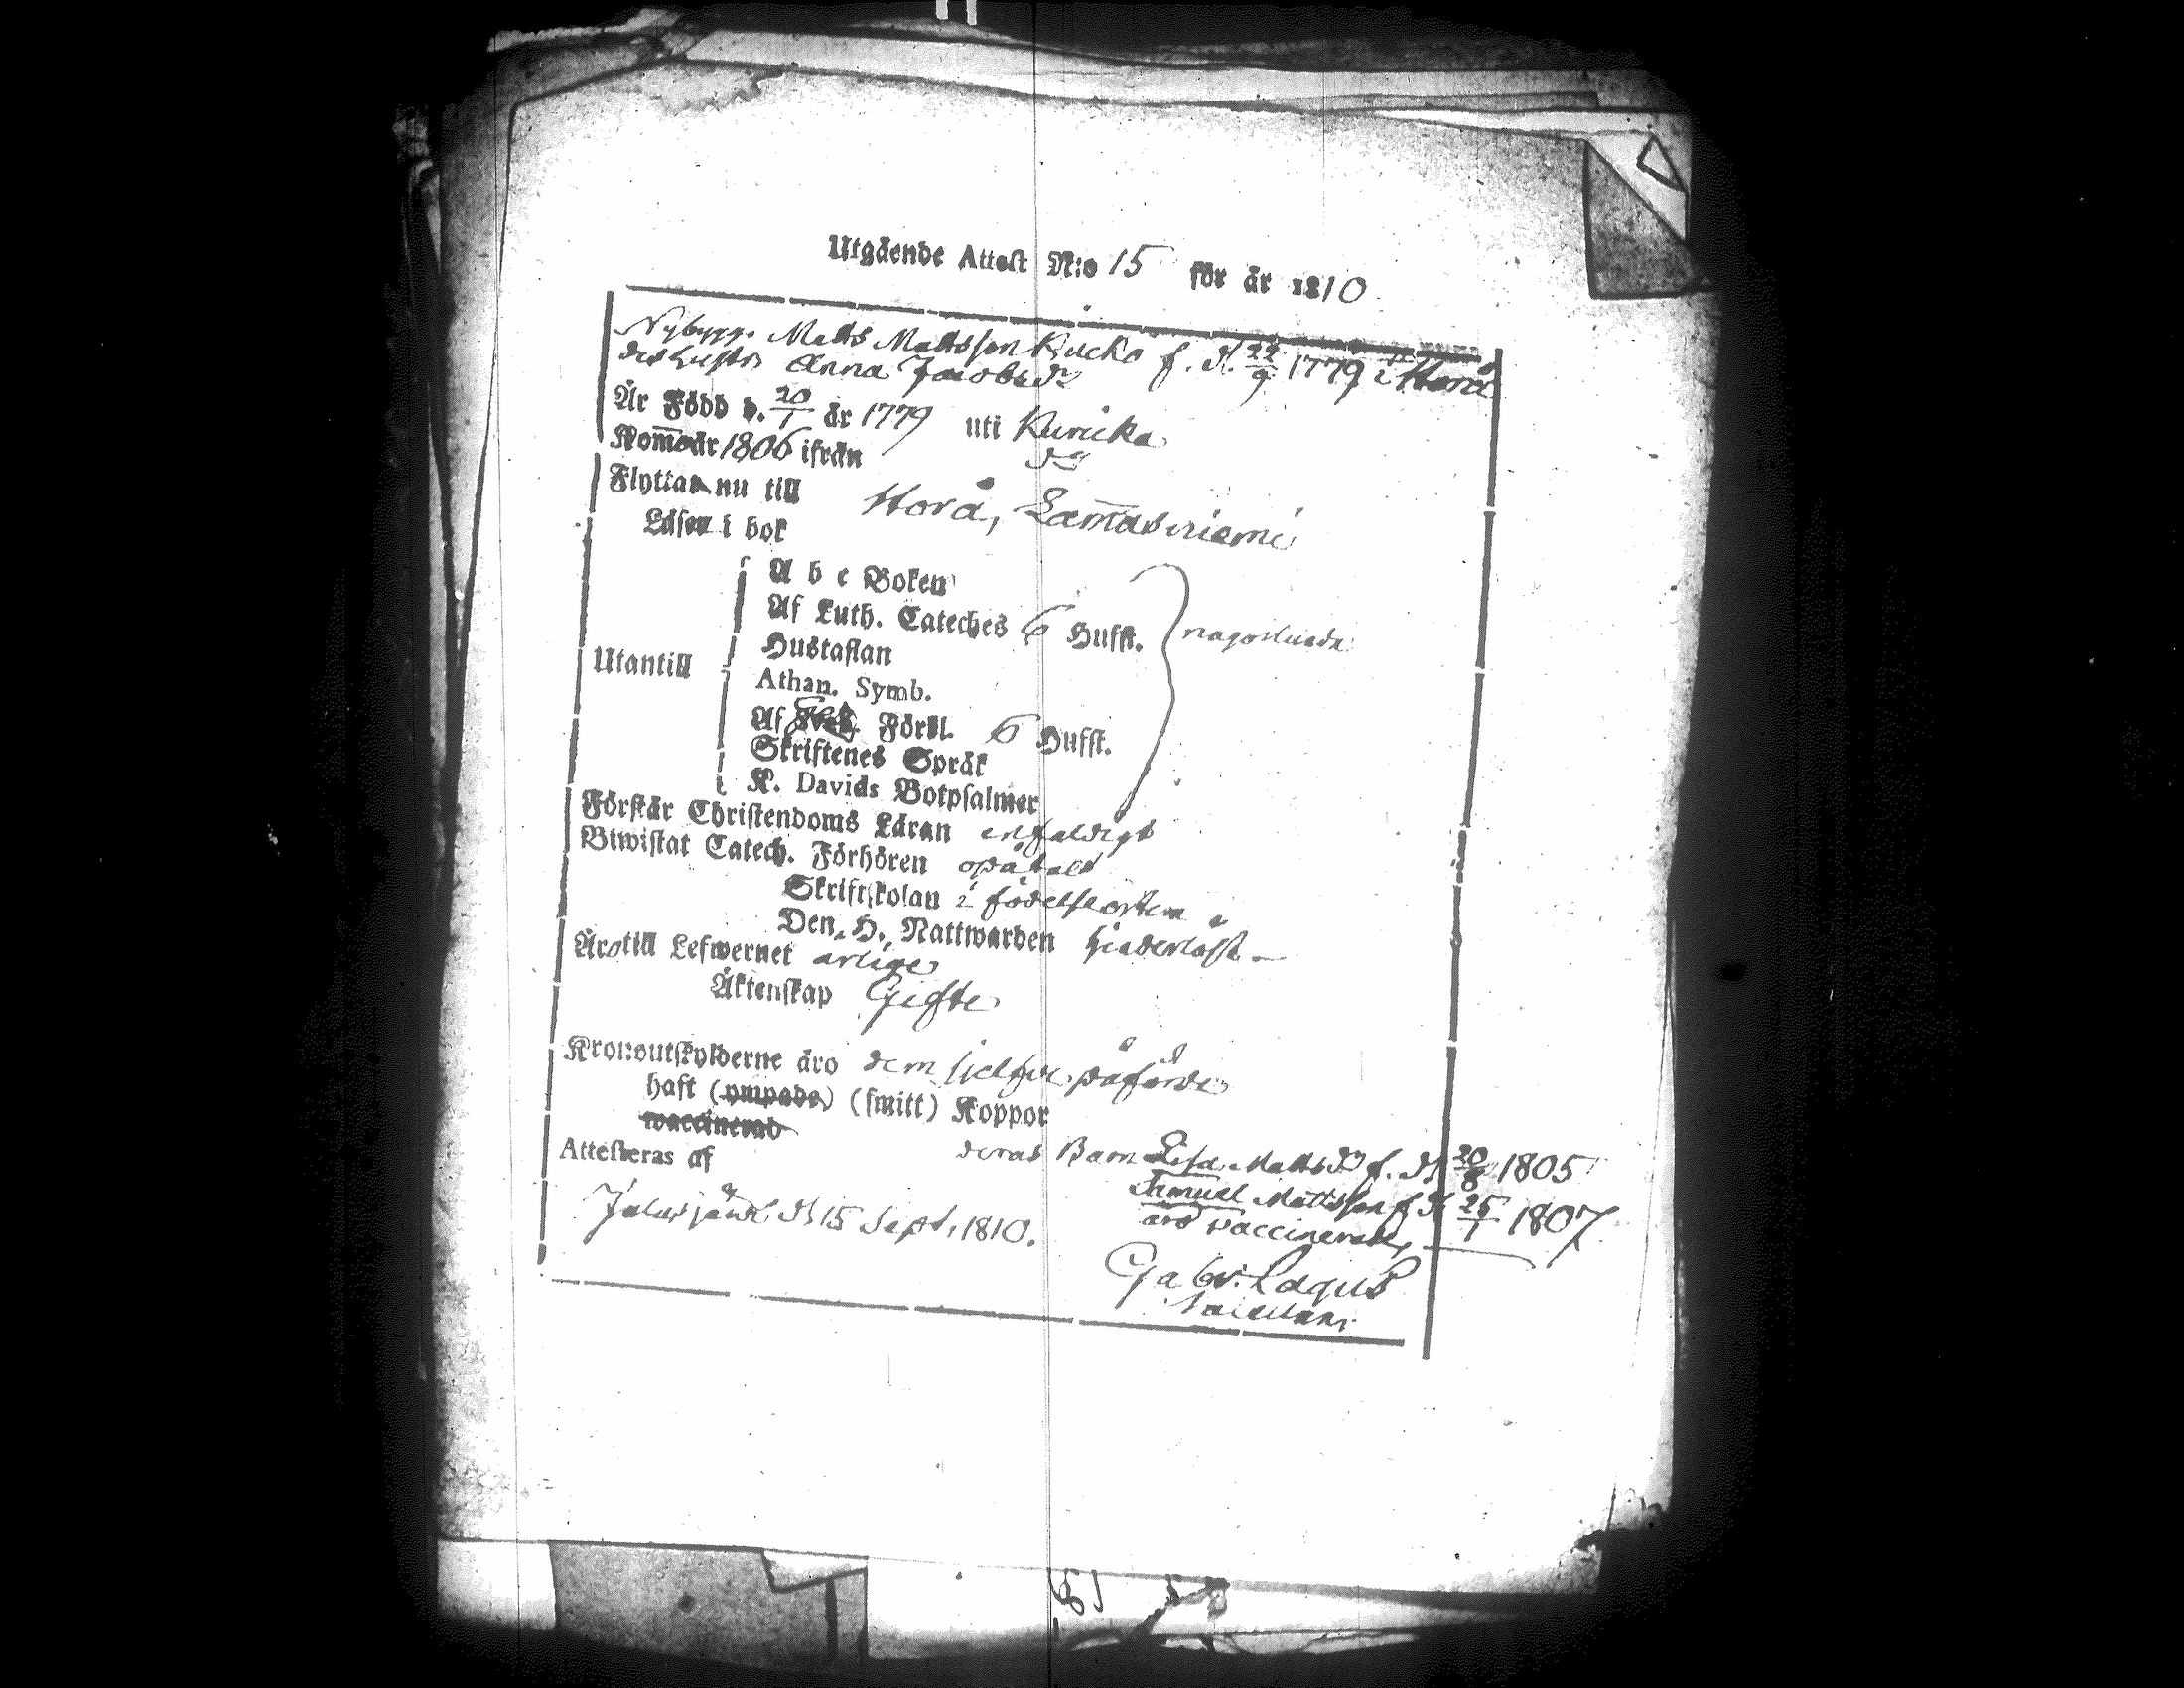 Utgående Attest N:o 15 för år 1810
Nybygg. Matts Mattsson Kucko f. d. 22/9 1779 i Storå
des hustr. Anna Jacobsdr
Är Född d. 20/1 år 1779 uti Kuricka
Kom̅o år 1806 ifrån dg
Flyttan nu till Storå, Lam̅asniemi
Läsen i bok
A b c Boken
Af Luth. Cateches 6 Hufst. någorlunda
Hustaflan
Utantill
Athan. Symb.
Af Förkl. 6 Hufst.
Skriftenes Språk
K. Davids Botpsalmer
Förstår Christendoms Läran enfaldigt
Biwistat Catech. Förhören opåtalt
Skriftskolan i födelseorten
Den H. Nattwarden hinderlöst
Äro till Lefwernet ärlige
Äktenskap Gifte
Kronoutskylderne äro dem sjelfve påförde
haft (ympade) (smitt) Koppor
vaccinerad
Attesteras af deras Barn Lisa Mattsdr f. d. 20/8 1805
Samuel Mattsson f. d. 25/1 1807
äro vaccinerade
Jalasjärvi d. 15 Sept. 1810.
Gabr. Lagus
Sacellan.